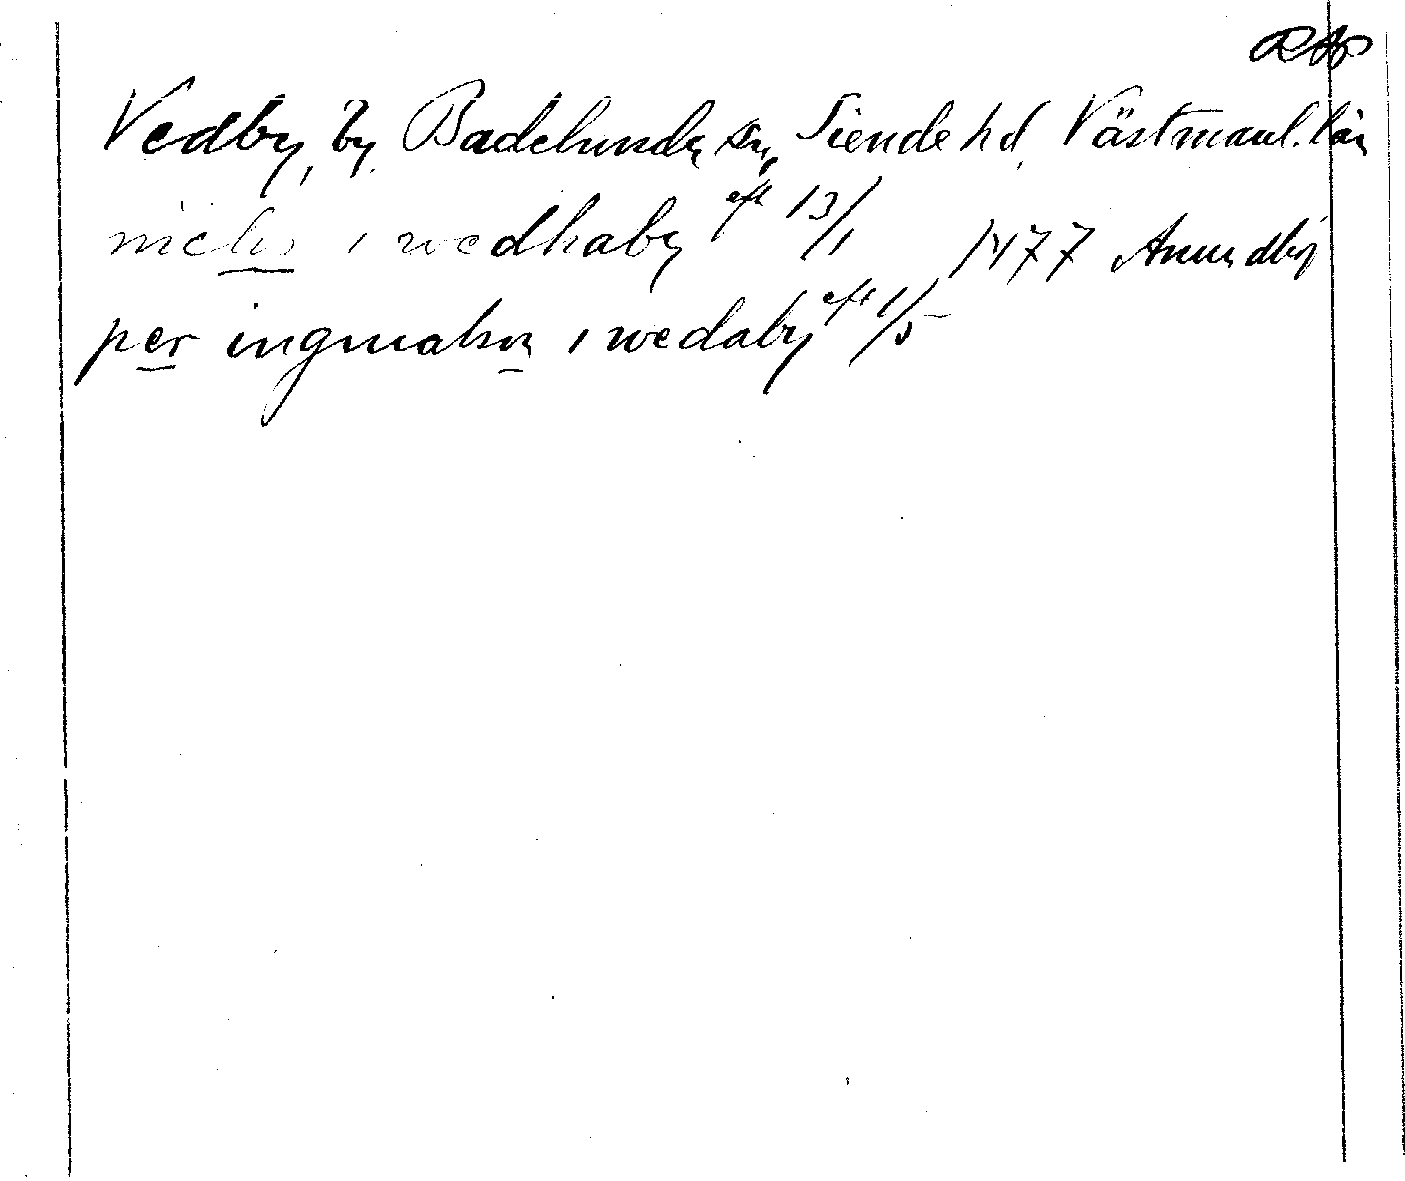 Vedby, by, Badelunda sn, Siende hd, Västmanl. län
niclis i wedhaby eft 13/1 1477 Arnundhög
per ingmalson i wedaby eft 1/5